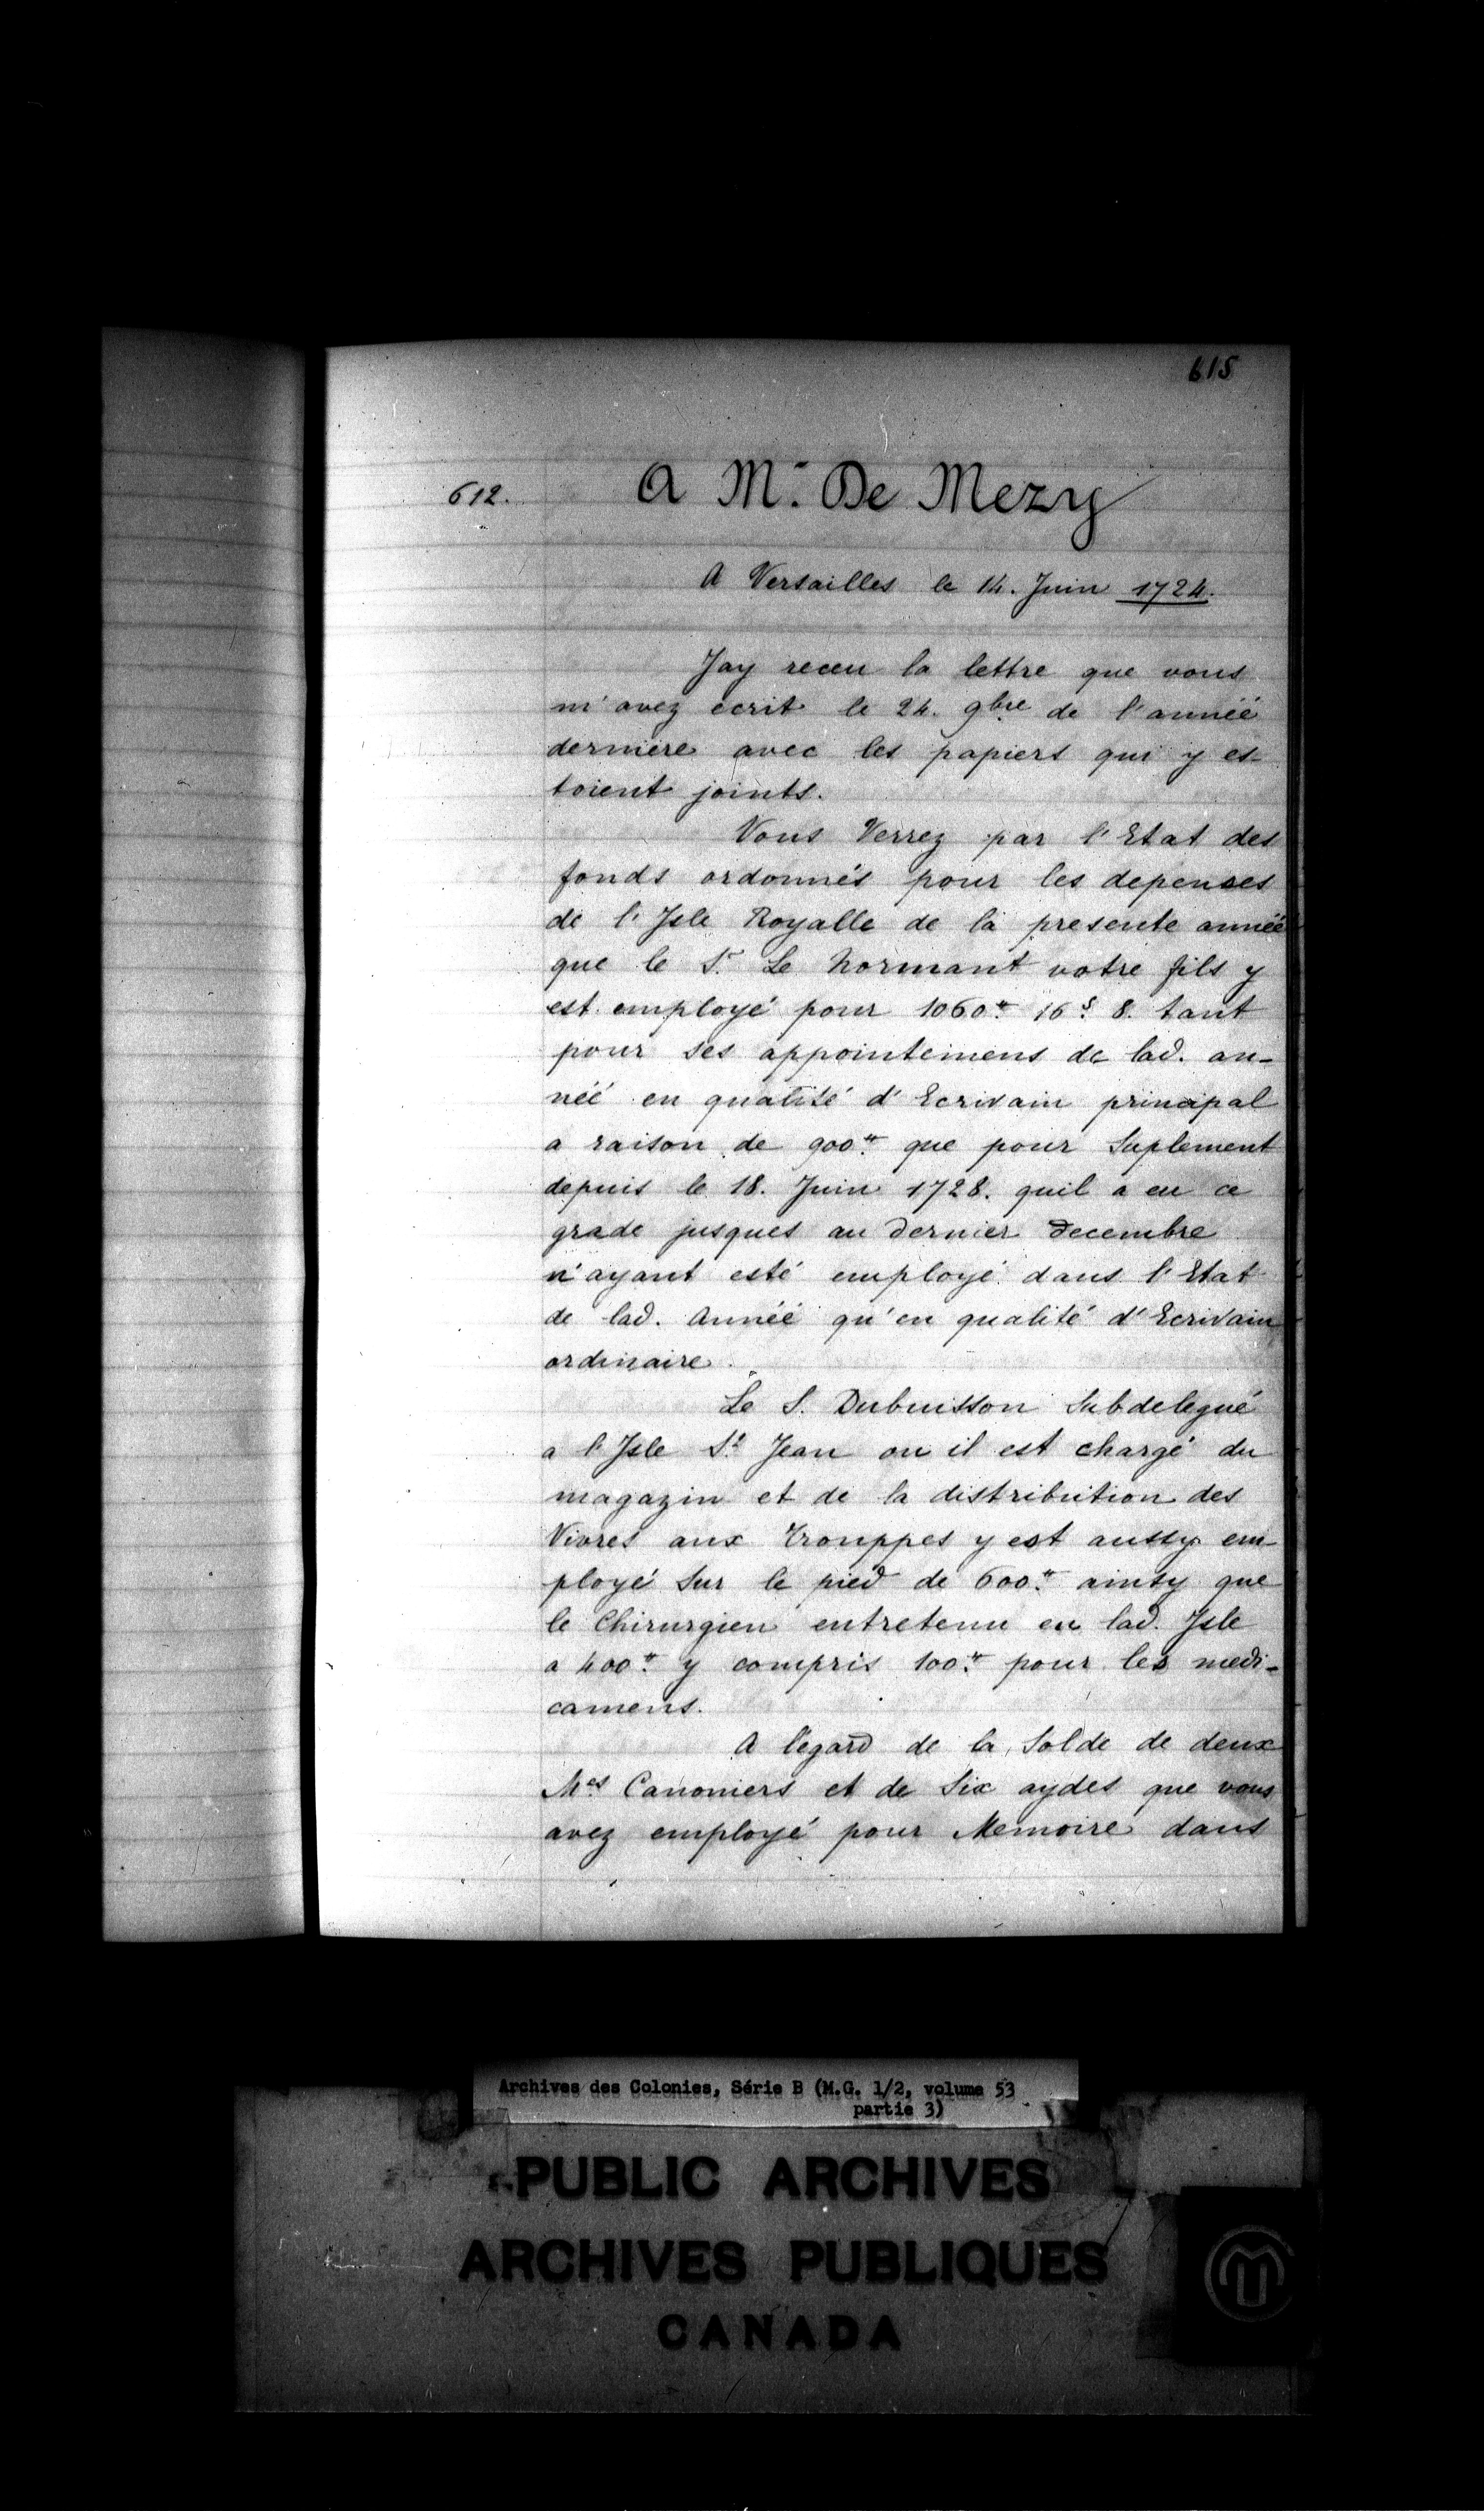 615
612.
A Mr. De Mezy
A Versailles le 14. Juin 1724.
Jay receu la lettre que vous
m'avez écrit le 24. 9bre de l'année
derniere avec les papiers qui y es-
toient joints.
Vous Verrez par l'Etat des
fonds ordonnés pour les depenses
de l'Isle Royalle de la presente année
que le Sr. Le Normant votre fils y
est employé pour 1060tt 16s. 8. tant
pour ses appointemens de lad. an-
néé en qualité d'Ecrivain principal
a raison de 900tt que pour Suplement
depuis le 18. Juin 1728. quil a eu ce
grade jusques au dernier Decembre
n'ayant esté employé dans l'Etat
de lad. Année qu'en qualité d'Ecrivain
ordinaire.
Le S. Dubuisson Subdelegué
a l'Isle St. Jean ou il est chargé du
magazin et de la distribution des
Vivres aux Trouppes y est aussy em-
ployé Sur le pied de 600tt ainsy que
le Chirurgien entretenu en lad. Isle
a 400tt y compris 100tt pour les medi-
camens.
A l'egard de la Solde de deux
Mes Canoniers et de Six aydes que vous
avez employé pour Memoire dans
Archives des Colonies, Série B (M.G. 1/2, volume 53
partie 3)
PUBLIC ARCHIVES
ARCHIVES PUBLIQUES
CANADA